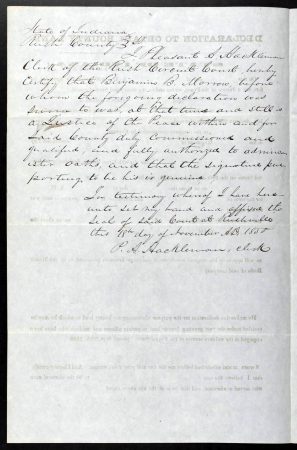 State of Indiana
Rush County } Sct
I Pleasant A Hackleman
Clerk of the Rush Circuit Court, hereby
Certify that Benjamin B. Morrow, before
whom the foregoing declaration was
sworn to was, at that time and still is
a Justice of the Peace within and for
Said County duly Commissioned and
qualified, and fully authorized to admin
ister oaths, and that the signature pur
porting to be his is genuine
In testimony whereof I have here
unto Set my hand and affixed the
Seal of Said Court at Rushville
this day of November AD 1850
P. A. Hackleman, clerk